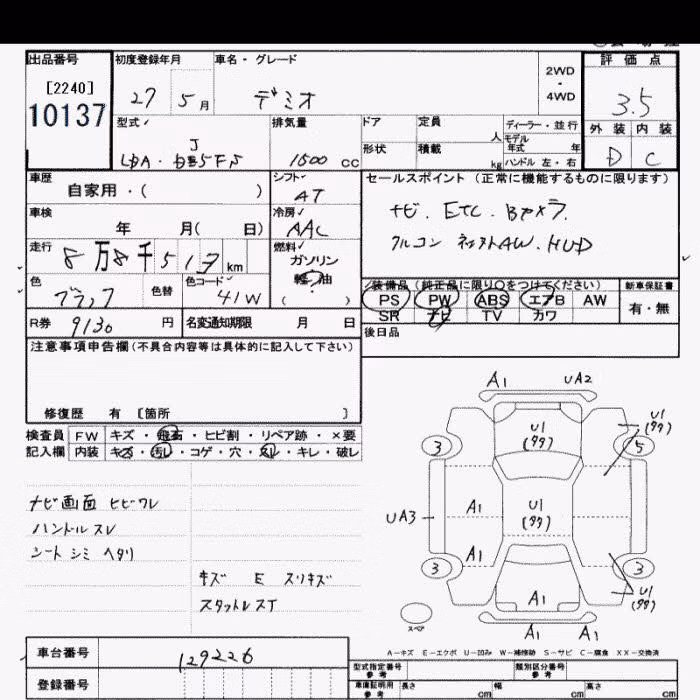 出品番号
[2240]
10137
初度登録年月
27 5月
車名・グレード
デミオ
2WD
・
4WD
評価点
3.5
外装 内装
D C
型式
LDA・
J
5FS
排気量
1500 cc
ドア
形状
定員
人
積載
kg
ディーラー・並行
モデル
年式 年
ハンドル 左・右
車歴
自家用・( )
シフト
AT
セールスポイント(正常に機能するものに限ります)
ナビ. ETC. Bカメラ.
クルコン AW. HUD
車検
年 月( 日)
冷房
AAC
走行
8万8千517km
燃料
ガソリン
軽油
( )
色
ブラック
色替
色コード
41W
装備品(純正品に限り○をつけてください)
PS PW ABS エアB AW
SR ナビ TV カワ
新車保証書
有・無
R券
9130 円
名変通知期限 月 日
後日品
注意事項申告欄(不具合内容等は具体的に記入して下さい)
修復歴 有 [箇所 ]
検査員
記入欄
FW キズ・飛石・ヒビ割・リペア跡・×要
内装 キズ・汚レ・コゲ・穴・スレ・キレ・破レ
ナビ画面 ヒビワレ
ハンドルスレ
シート シミ ヘタリ
キズ E スリキズ
スタットレスT
A1 UA2
U1
(タタ)
U1
(タタ)
3 5
UA3
A1
U1
(タタ)
A1
3 3
A1
U1
(タタ)
A1 A1
スペア
A-キズ E-エクボ U-凹み W-補修跡 S-サビ C-腐食 XX-交換済
車台番号
129226
登録番号
型式指定番号
参考
類別区分番号
参考
車庫証明用
参考
長さ cm
幅 cm
高さ cm